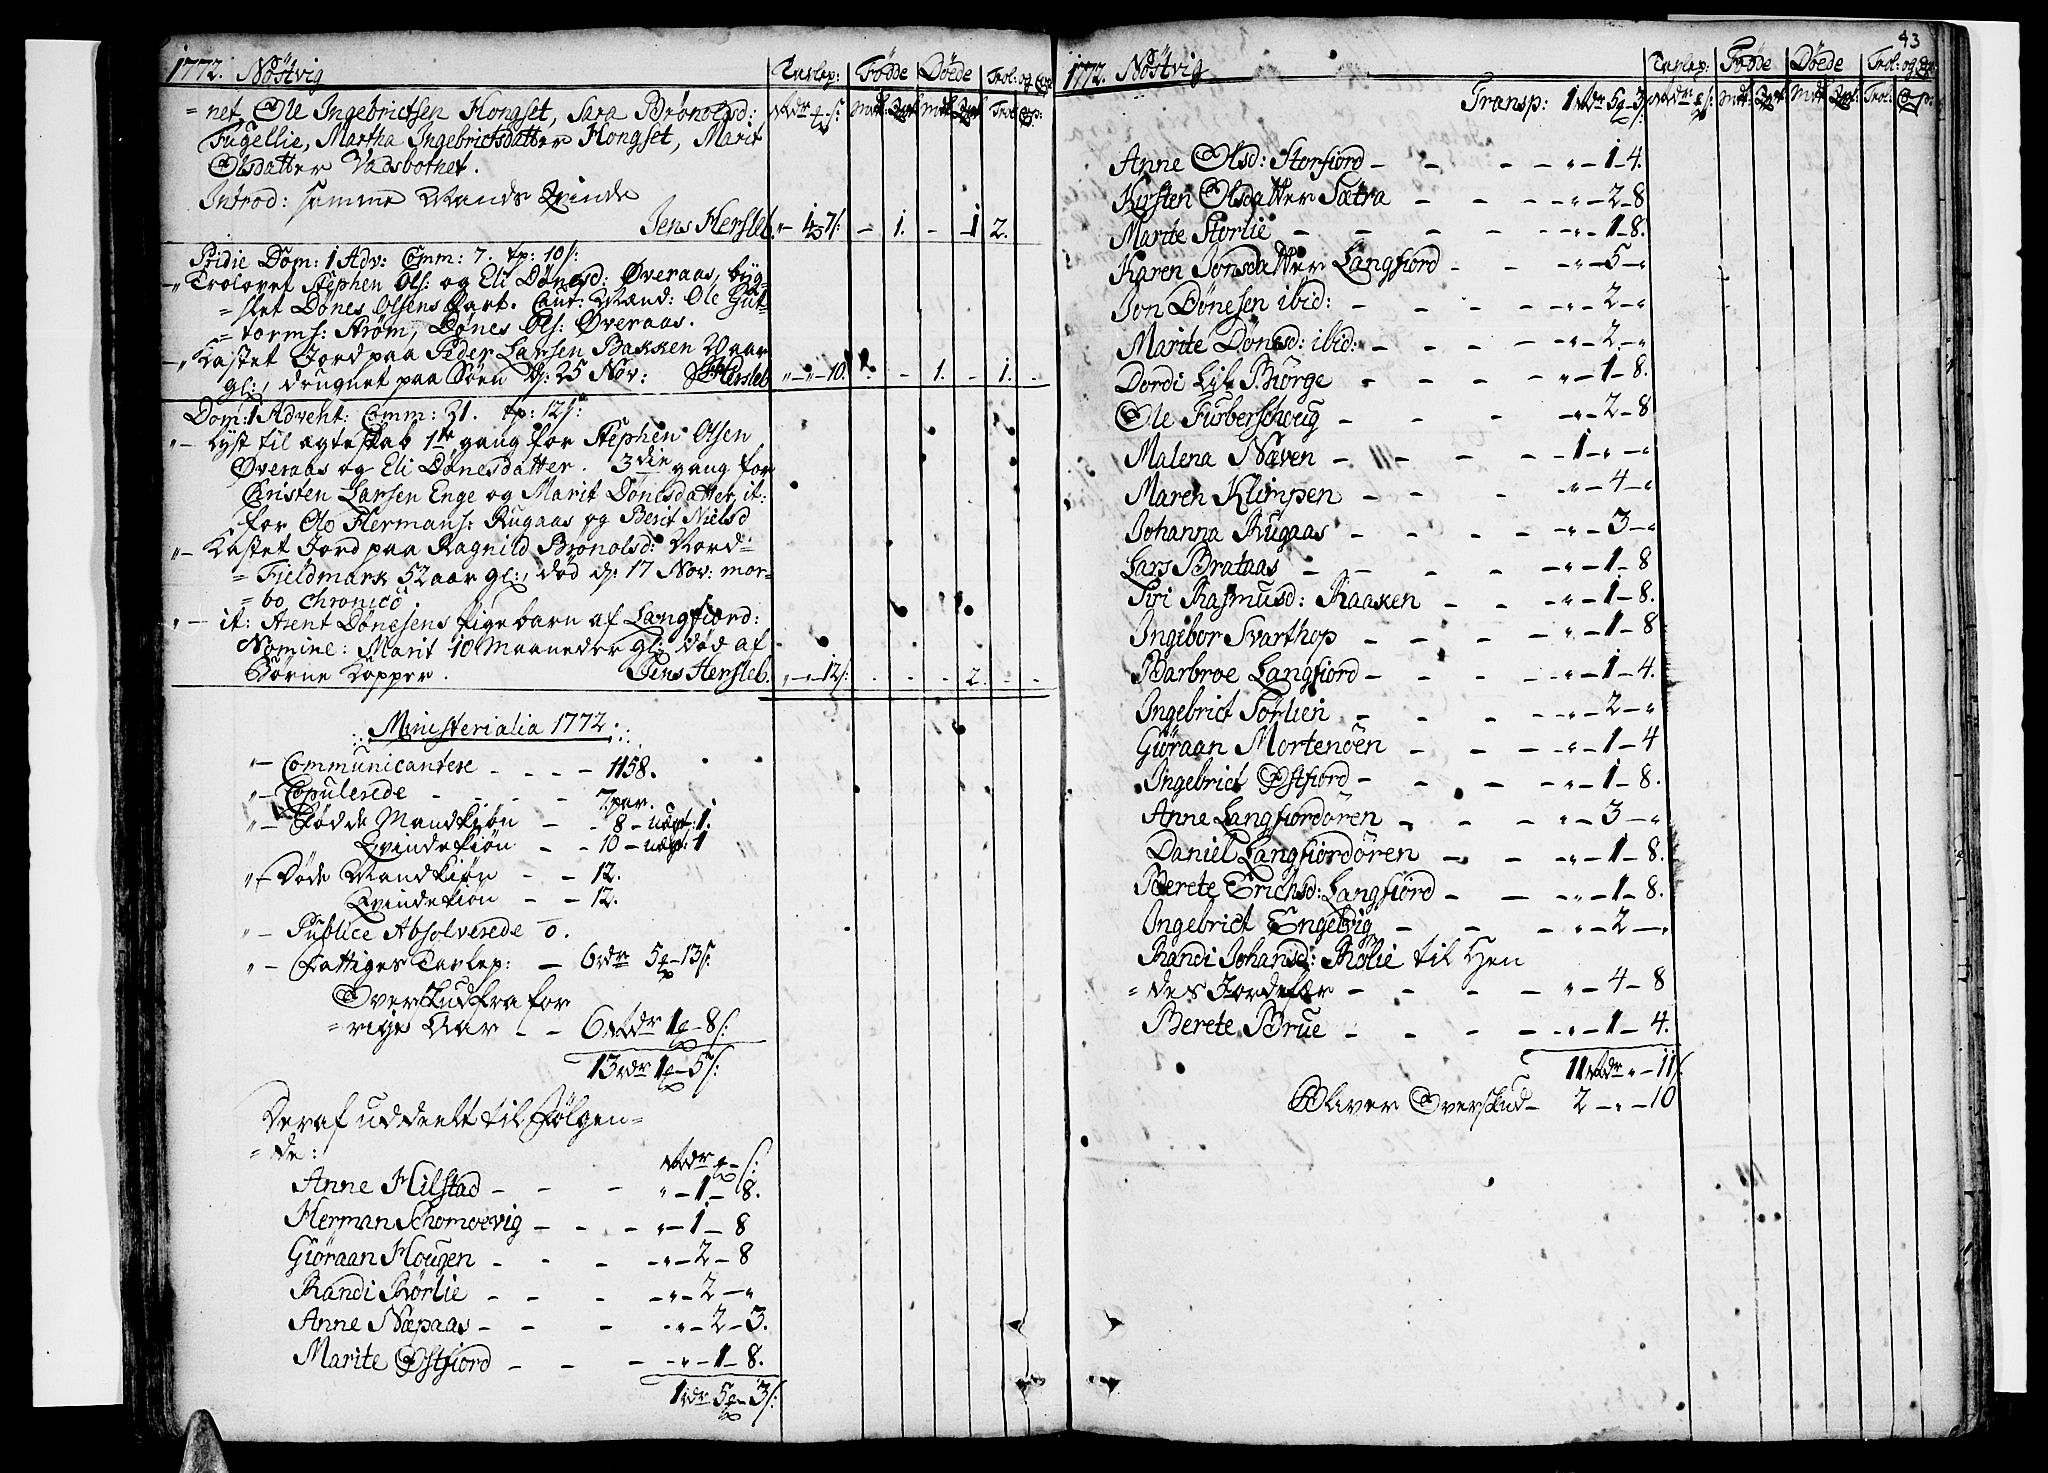 1772. Nöstvig Tavlep: Födde Döede Trol: og Cop:
Rdr ʒ. s: Mdk: Qvk: Mdk: Qvk: Trol: Cop:
= net, Ole Ingebrictsen Hongset, Sara Brönolsd:
Fugellie, Martha Ingebrictsdatter Hongset, Marit
Olsdatter Vadsbothet.
Introd: samme Mands Qvinde
Jens Hersleb. " 4 - 7 s: - 1. - 1 2.
Pridie Dom: 1 Adv: Comm: 7. tp: 10 s:
"- Trolovet Stephen Ols: og Eli Dönesd: Øveraas, byg-
= slet Dönes Olsens Part. Caut: Mænd: Ole Gut-
= torms: Ström, Dönes Ols: Øveraas.
"- Kastet Jord paa Peder Larsen Bakken Vaar
gl:, drugnet paa Söen d: 25 Nov: JHersleb " - " - 10. - 1. - 1. -
Dom: 1 Advent: Comm: 31. tp: 12 s:
"- Lyst til ægteskab 1te gang for Stephen Olsen
Øveraas og Eli Dönesdatter. 3die gang for
Christen Larsen Enge og Marit Dönesdatter, it:
for Ole Hermans: Rugaas og Berit Nielsd
"- Kastet Jord paa Ragnild Brönolsd: Nord-
= Fieldmark 52 aar gl:, död d: 17 Nov: mor-
= bo chronico
"- it: Arent Dönesens Pigebarn af Langfiord:
Nomine: Marit 10 Maaneder gl: död af
Börne Kopper. Jens Hersleb. " - " 12 s: - - - 2. - -
Ministerialia 1772.
"- Communicantere - - - - 1158.
"- Copulerede - - - - 7 par.
"- Födde Mandkiön - - 8 - uægt: 1.
Qvindekiön - - 10 - uægt: 1
"- Döde Mandkiön - - 12.
Qvindekiön - - 12.
"- Publice Absolverede 0.
"- Fattiges Tavlep: - 6 rdr 5 ʒ - 13 s:
Overskud fra for
= rige Aar - - 6 rdr 1 ʒ - 8 s:
13 rdr 1 ʒ - 5 s:
Deraf uddeelt til Fölgen=
= de:
Rdr ʒ - s:
Anne Hilstad - - - " - 1 - 8.
Herman Schomoevig - - - " - 1 - 8
Giöraan Hougen - - - " - 2 - 8
Randi Rörlie - - - " - 2 - "
Anne Næpaas - - - " - 2 - 3.
Marite Østfiord - - - " - 1 - 8.
1 rdr 5 ʒ - 3 s:
43
1772. Nöstvig Tavlep: Födde Döede Trol: og Cop:
Transp: 1 Rdr 5 ʒ - 3 s: Rdr ʒ s: Mdk: Qvk: Mdk: Qvk: Trol: Cop:
Anne Olsd: Storfiord - - - - " - 1 - 4.
Kirsten Olsdatter Sætra - - - " - 2 - 8
Marite Storlie - - - - " - 1 - 8.
Karen Jonsdatter Langfiord - - " - 5 - "
Jon Dönesen ibid: - - - - " - 2 - "
Marite Dönesd: ibid: - - - - " - 2 - "
Dordi Lil Biörge - - - - " - 1 - 8.
Ole Furberschoug - - - " - 2 - 8
Malena Næven - - - - 1 - " - "
Maren Klimpen - - - " - 4 - "
Johanna Rugaas - - - - " - 3 - "
Lars Brataas - - - - " - 1 - 8
Siri Rasmusd: Raaken - - - " - 1 - 8.
Ingebor Svarthop - - - " - 1 - 8
Barbroe Langfiord - - - - " - 1 - 4.
Ingebrict Sörlien - - - - " - 2 - "
Giöraan Mortenöen - - - - " - 1 - 4
Ingebrict Østfiord - - - - " - 1 - 8.
Anne Langfiordören - - - " - 3 - "
Daniel Langfiordören - - - " - 1 - 8.
Berete Erichsd: Langfiord - - - " - 1 - 8.
Ingebrict Engelvig - - - " - 2 - "
Randi Johansd: Rölie til Hen
= des Jordefær - - - - " - 4 - 8
Berete Brue - - - - " - 1 - 4.
11 Rdr " - 11 s:
Bliver Overskud - 2 - " - 10